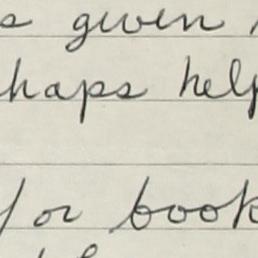 s given
haps help
for book